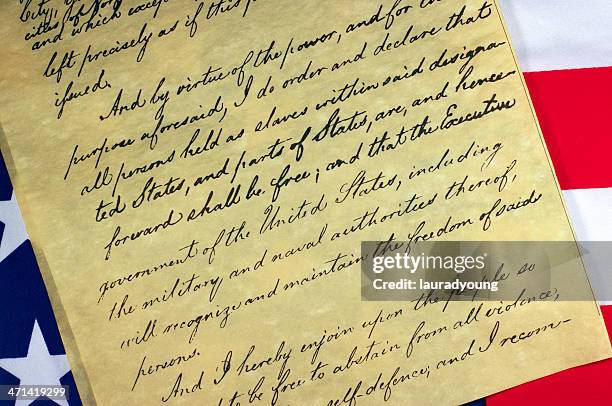 City,
cities of
and which excep
left precisely as if this
issued.
And by virtue of the power, and for the
purpose aforesaid, I do order and declare that
all persons held as slaves within said designa-
ted States, and parts of States, are, and hence-
forward shall be free; and that the Executive
government of the United States, including
the military and naval authorities thereof,
will recognize and maintain the freedom of said
persons.
And I hereby enjoin upon the people so
to be free to abstain from all violence,
self-defence; and I recom-
lauradyoung
471419299